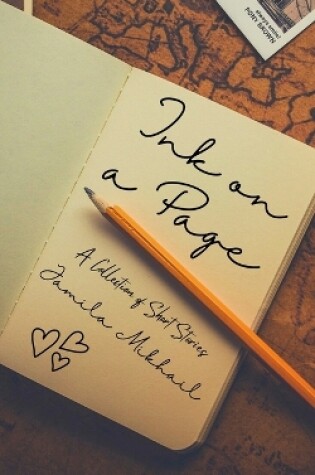 Ink on
a Page
A Collection of Short Stories
Jamila Mikhail